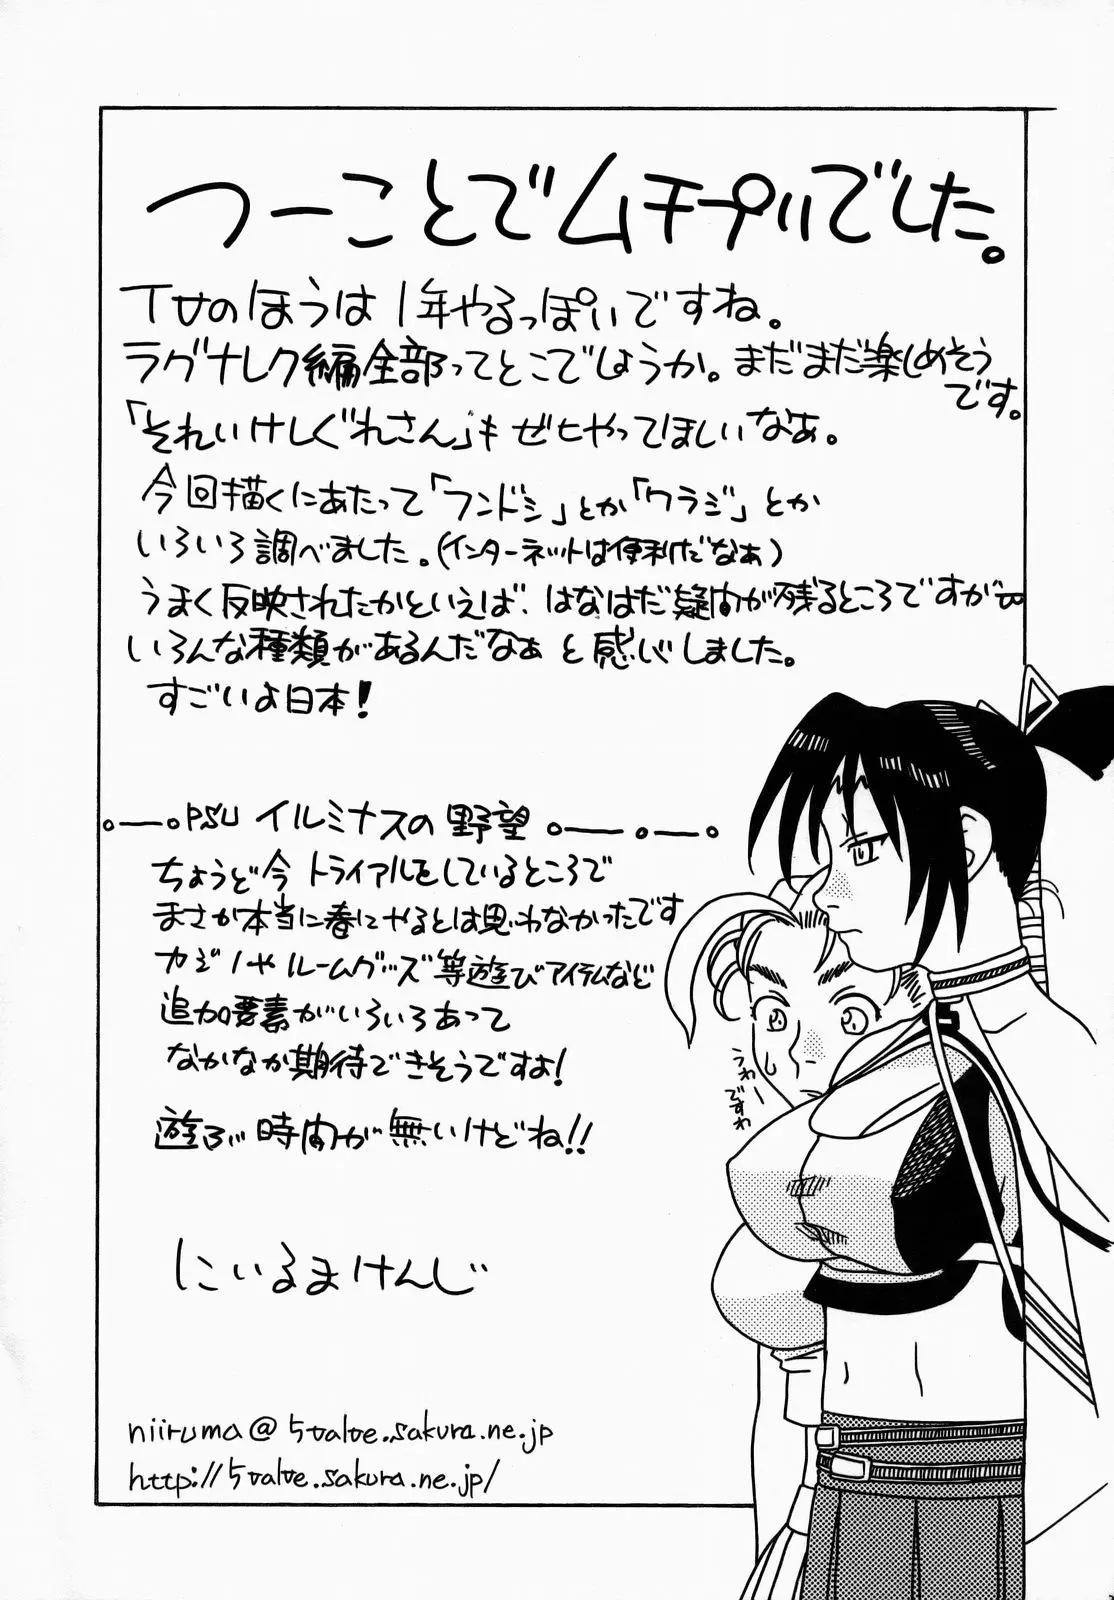 つーことでムチプリでした。
TVのほうは1年やるっぽいですね。
ラグナレク編全部ってとこでしょうか。まだまだ楽しめそう
です。
「それいけしぐれさん」も ぜヒやってほしいなぁ。
今回描くにあたって「フンドシ」とか「ワラジ」とか
いろいろ調べました。(インターネットは便利だなぁ)
うまく反映されたかといえば、はなはだ疑問が残るところですが
いろんな種類があるんだなぁと感じしました。
すごいよ日本!
PSU イルミナスの野望
ちょうど今 トライアルをしているところで
まさか本当に春にやるとは思わなかったです
カジノやルームグッズ等遊びアイテムなど
追加要素がいろいろあって
なかなか期待できそうですよ!
遊ぶ時間が無いけどね!!
うわー
ですわ
にいるまけんじ
niiruma@5valve.sakura.ne.jp
http://5valve.sakura.ne.jp/